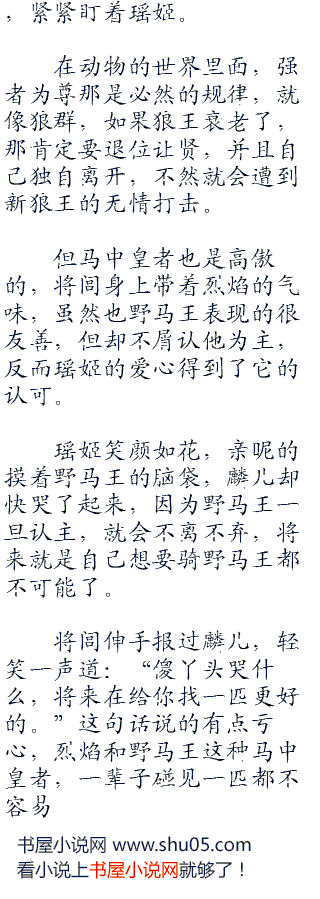 ，紧紧盯着瑶姬。
在动物的世界里面，强
者为尊那是必然的规律，就
像狼群，如果狼王衰老了，
那肯定要退位让贤，并且自
己独自离开，不然就会遭到
新狼王的无情打击。
但马中皇者也是高傲
的，将闾身上带着烈焰的气
味，虽然也野马王表现的很
友善，但却不屑认他为主，
反而瑶姬的爱心得到了它的
认可。
瑶姬笑颜如花，亲呢的
摸着野马王的脑袋，麟儿却
快哭了起来，因为野马王一
旦认主，就会不离不弃，将
来就是自己想要骑野马王都
不可能了。
将闾伸手报过麟儿，轻
笑一声道：“傻丫头哭什
么，将来在给你找一匹更好
的。”这句话说的有点亏
心，烈焰和野马王这种马中
皇者，一辈子碰见一匹都不
容易
书屋小说网 www.shu05.com
看小说上书屋小说网就够了！